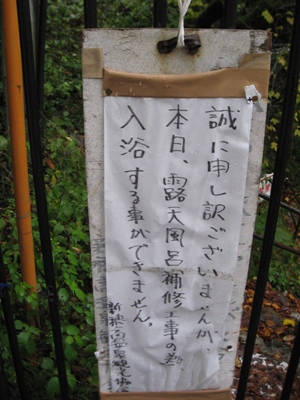 誠に申し訳ございませんが、
本日、露天風呂補修工事の為、
入浴する事ができません。
新穂高